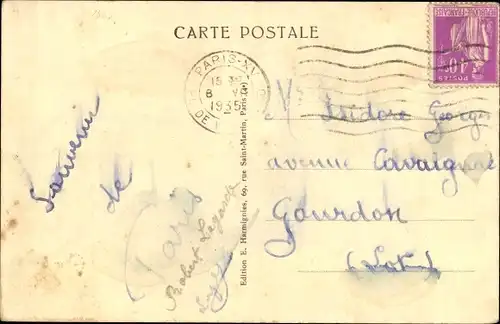 CARTE POSTALE
PARIS-XV
15
8
1935
40
POSTES
Souvenir
de
Paris
Robert Lagarde
Isidore Georges
avenue Cavaignac
Gourdon
(Lot)
Edition E. Harmignies, 69, rue Saint-Martin, Paris (4e)